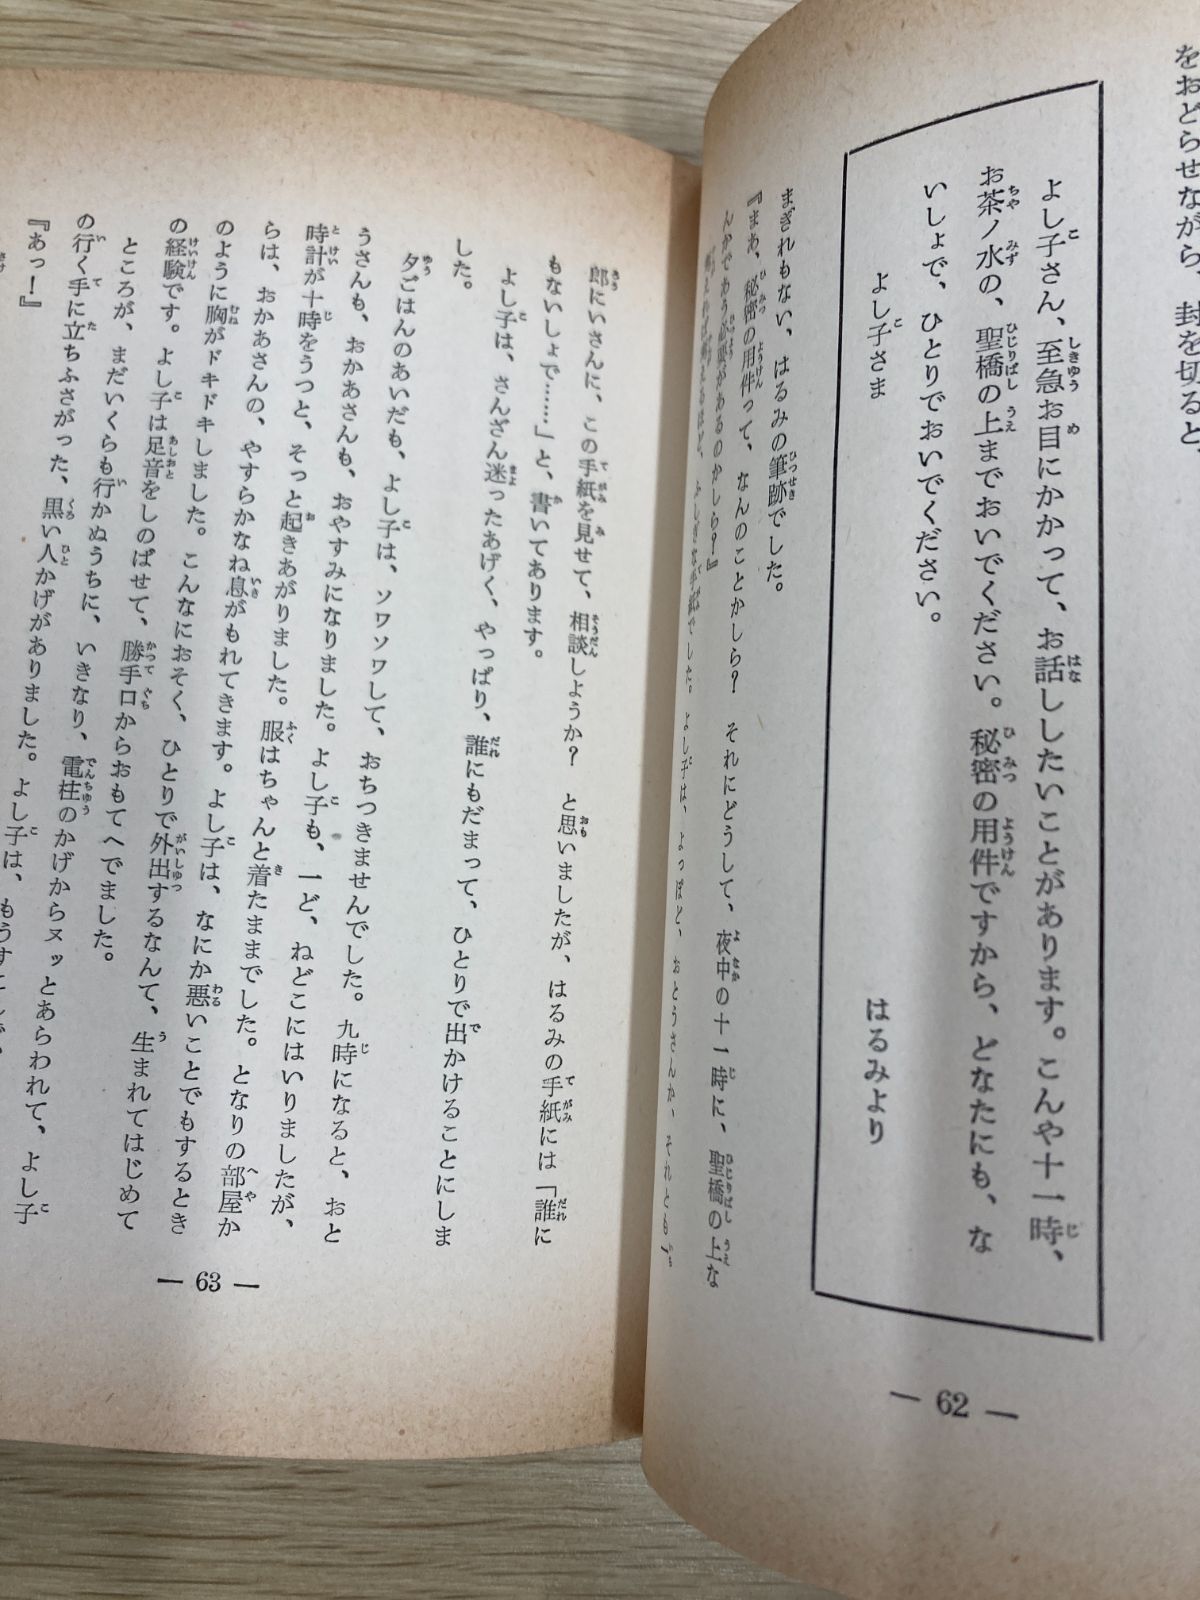 をおどらせながら、封を切ると、
よし子さん、至急お目にかかって、お話ししたいことがあります。こんや十一時、
お茶ノ水の、聖橋の上までおいでください。秘密の用件ですから、どなたにも、な
いしょで、ひとりでおいでください。
はるみより
よし子さま
まぎれもない、はるみの筆跡でした。
『まあ、秘密の用件って、なんのことかしら？　それにどうして、夜中の十一時に、聖橋の上な
んかであう必要があるのかしら？』
考えれば考えるほど、ふしぎな手紙でした。よし子は、よっぽど、おとうさんか、それとも
郎にいさんに、この手紙を見せて、相談しようか？　と思いましたが、はるみの手紙には「誰に
もないしょで……」と、書いてあります。
よし子は、さんざん迷ったあげく、やっぱり、誰にもだまって、ひとりで出かけることにしま
した。
夕ごはんのあいだも、よし子は、ソワソワして、おちつきませんでした。九時になると、おと
うさんも、おかあさんも、おやすみになりました。よし子も、一ど、ねどこにはいりましたが、
時計が十時をうつと、そっと起きあがりました。服はちゃんと着たままでした。となりの部屋か
らは、おかあさんの、やすらかなね息がもれてきます。よし子は、なにか悪いことでもするとき
のように胸がドキドキしました。こんなにおそく、ひとりで外出するなんて、生まれてはじめて
の経験です。よし子は足音をしのばせて、勝手口からおもてへでました。
ところが、まだいくらも行かぬうちに、いきなり、電柱のかげからヌッとあらわれて、よし子
の行く手に立ちふさがった、黒い人かげがありました。よし子は、もうすこしで、
『あっ！』
— 62 —
— 63 —